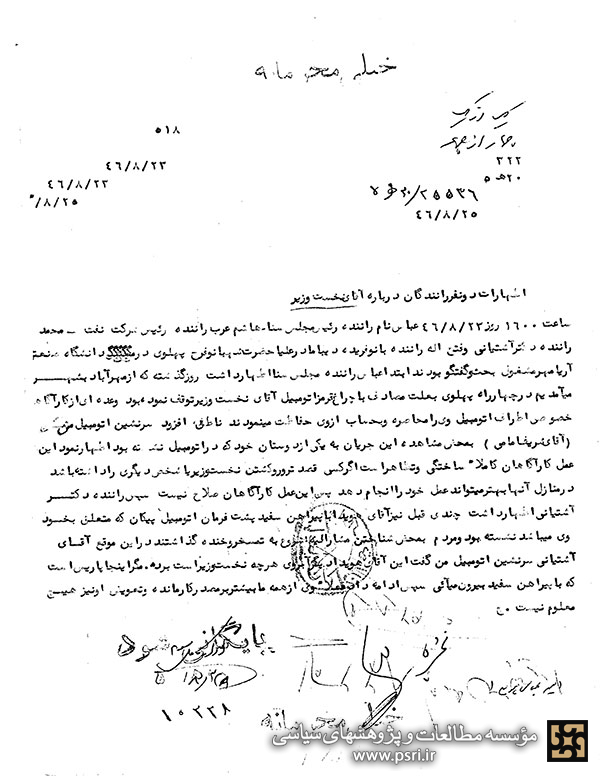 خیلی محرمانه
۳۲۲
۵۱۸
۲۰ هـ ۵
۴۶/۸/۲۳
۴۶/۸/۲۳
۲۰/۲۵۵۳۶ هـ ۵
۴۶/۸/۲۵
اظهارات دونفررانندگان درباره آقای نخست وزیر
ساعت ۱۶۰۰ روز ۴۶/۸/۲۳ عباس نام راننده رئیس مجلس سنا هاشم عرب راننده رئیس شرکت نفت – محمد
راننده دکتر آشتیانی وفتن اله راننده بانو فریده دیبا مادر علیاحضرت شهبانو فرح پهلوی در دانشگاه صنعتی
آریامهر مشغول بحث و گفتگو بودند ابتدا عباس راننده مجلس سنا اظهار داشت روز گذشته که از مهرآباد بشهر
میآمدیم در چهارراه پهلوی بعلت مصادف با چراغ قرمز اتومبیل آقای نخست وزیر توقف نموده بود وعده ای از کارآگاهان
خصوصی اطراف اتومبیل وی را محاصره وبحساب ازوی حفاظت مینمودند ناطق افزود سرنشین اتومبیل من
(آقای شریف امامی) بمحض مشاهده این جریان به یکی از دوستان خود که در اتومبیل نشسته بود اظهار نمود این
عمل کارآگاهان کاملا" ساختگی وتظاهر است اگر کسی قصد ترور و کشتن نخست وزیر یا شخص دیگری را داشته باشد
در منازل آنها بهتر میتواند عمل خود را انجام دهد پس این عمل کارآگاهان صلاح نیست سپس راننده دکتر
آشتیانی اظهار داشت چندی قبل نیز آقای هویدا با پیراهن سفید پشت فرمان اتومبیل پیکان که متعلق بخود
وی میباشد نشسته بود ومردم بمحض شناختن مشارالیه شروع به تمسخر و خنده گذاشتند در این موقع آقای
آشتیانی سرنشین اتومبیل من گفت این آقای هویدا دیگر آبروی هرچه نخست وزیر است برده مگر اینجا پاریس است
که با پیراهن سفید بیرون میآئی سپس ادامه داد فعلا" وی از همه ما بیشتر بر مصدر کار مانده وتعویض او نیز هیچ
معلوم نیست
بایگانی شود
۱۰۳۳۸
خیلی محرمانه
مؤسسه مطالعات و پژوهشهای سیاسی
www.psri.ir